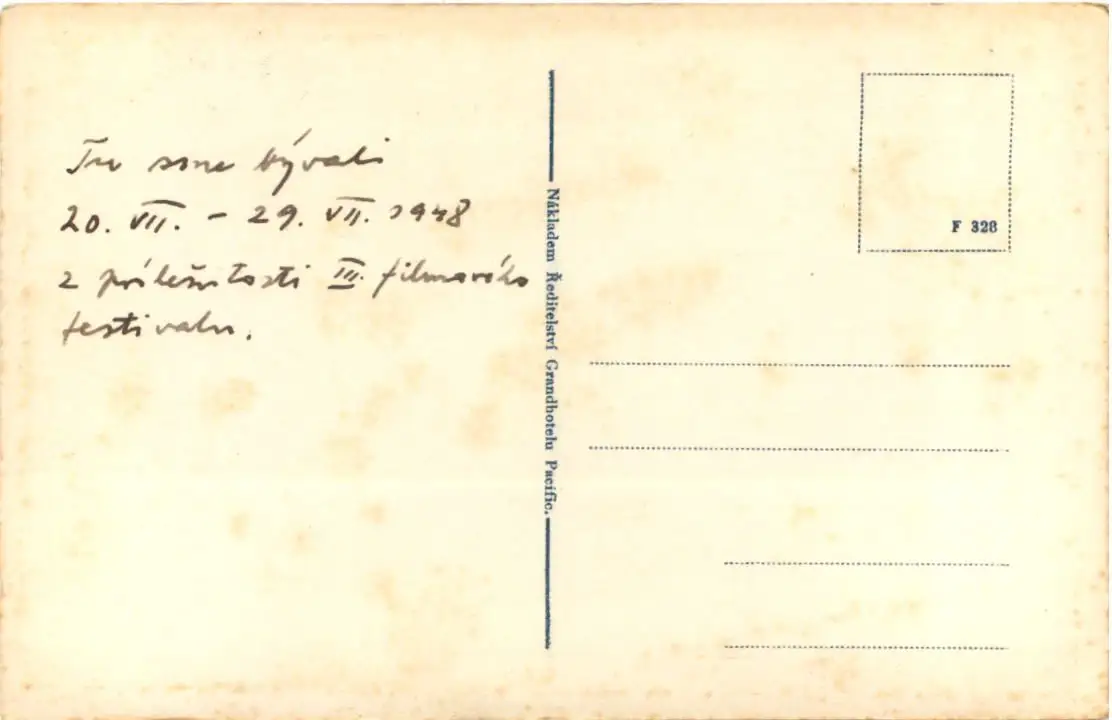 Tu sme bývali
20. VII. - 29. VII. 1948
z príležitosti III. filmového
festivalu.
Nákladem Ředitelství Grandhotelu Pacific.
F 328